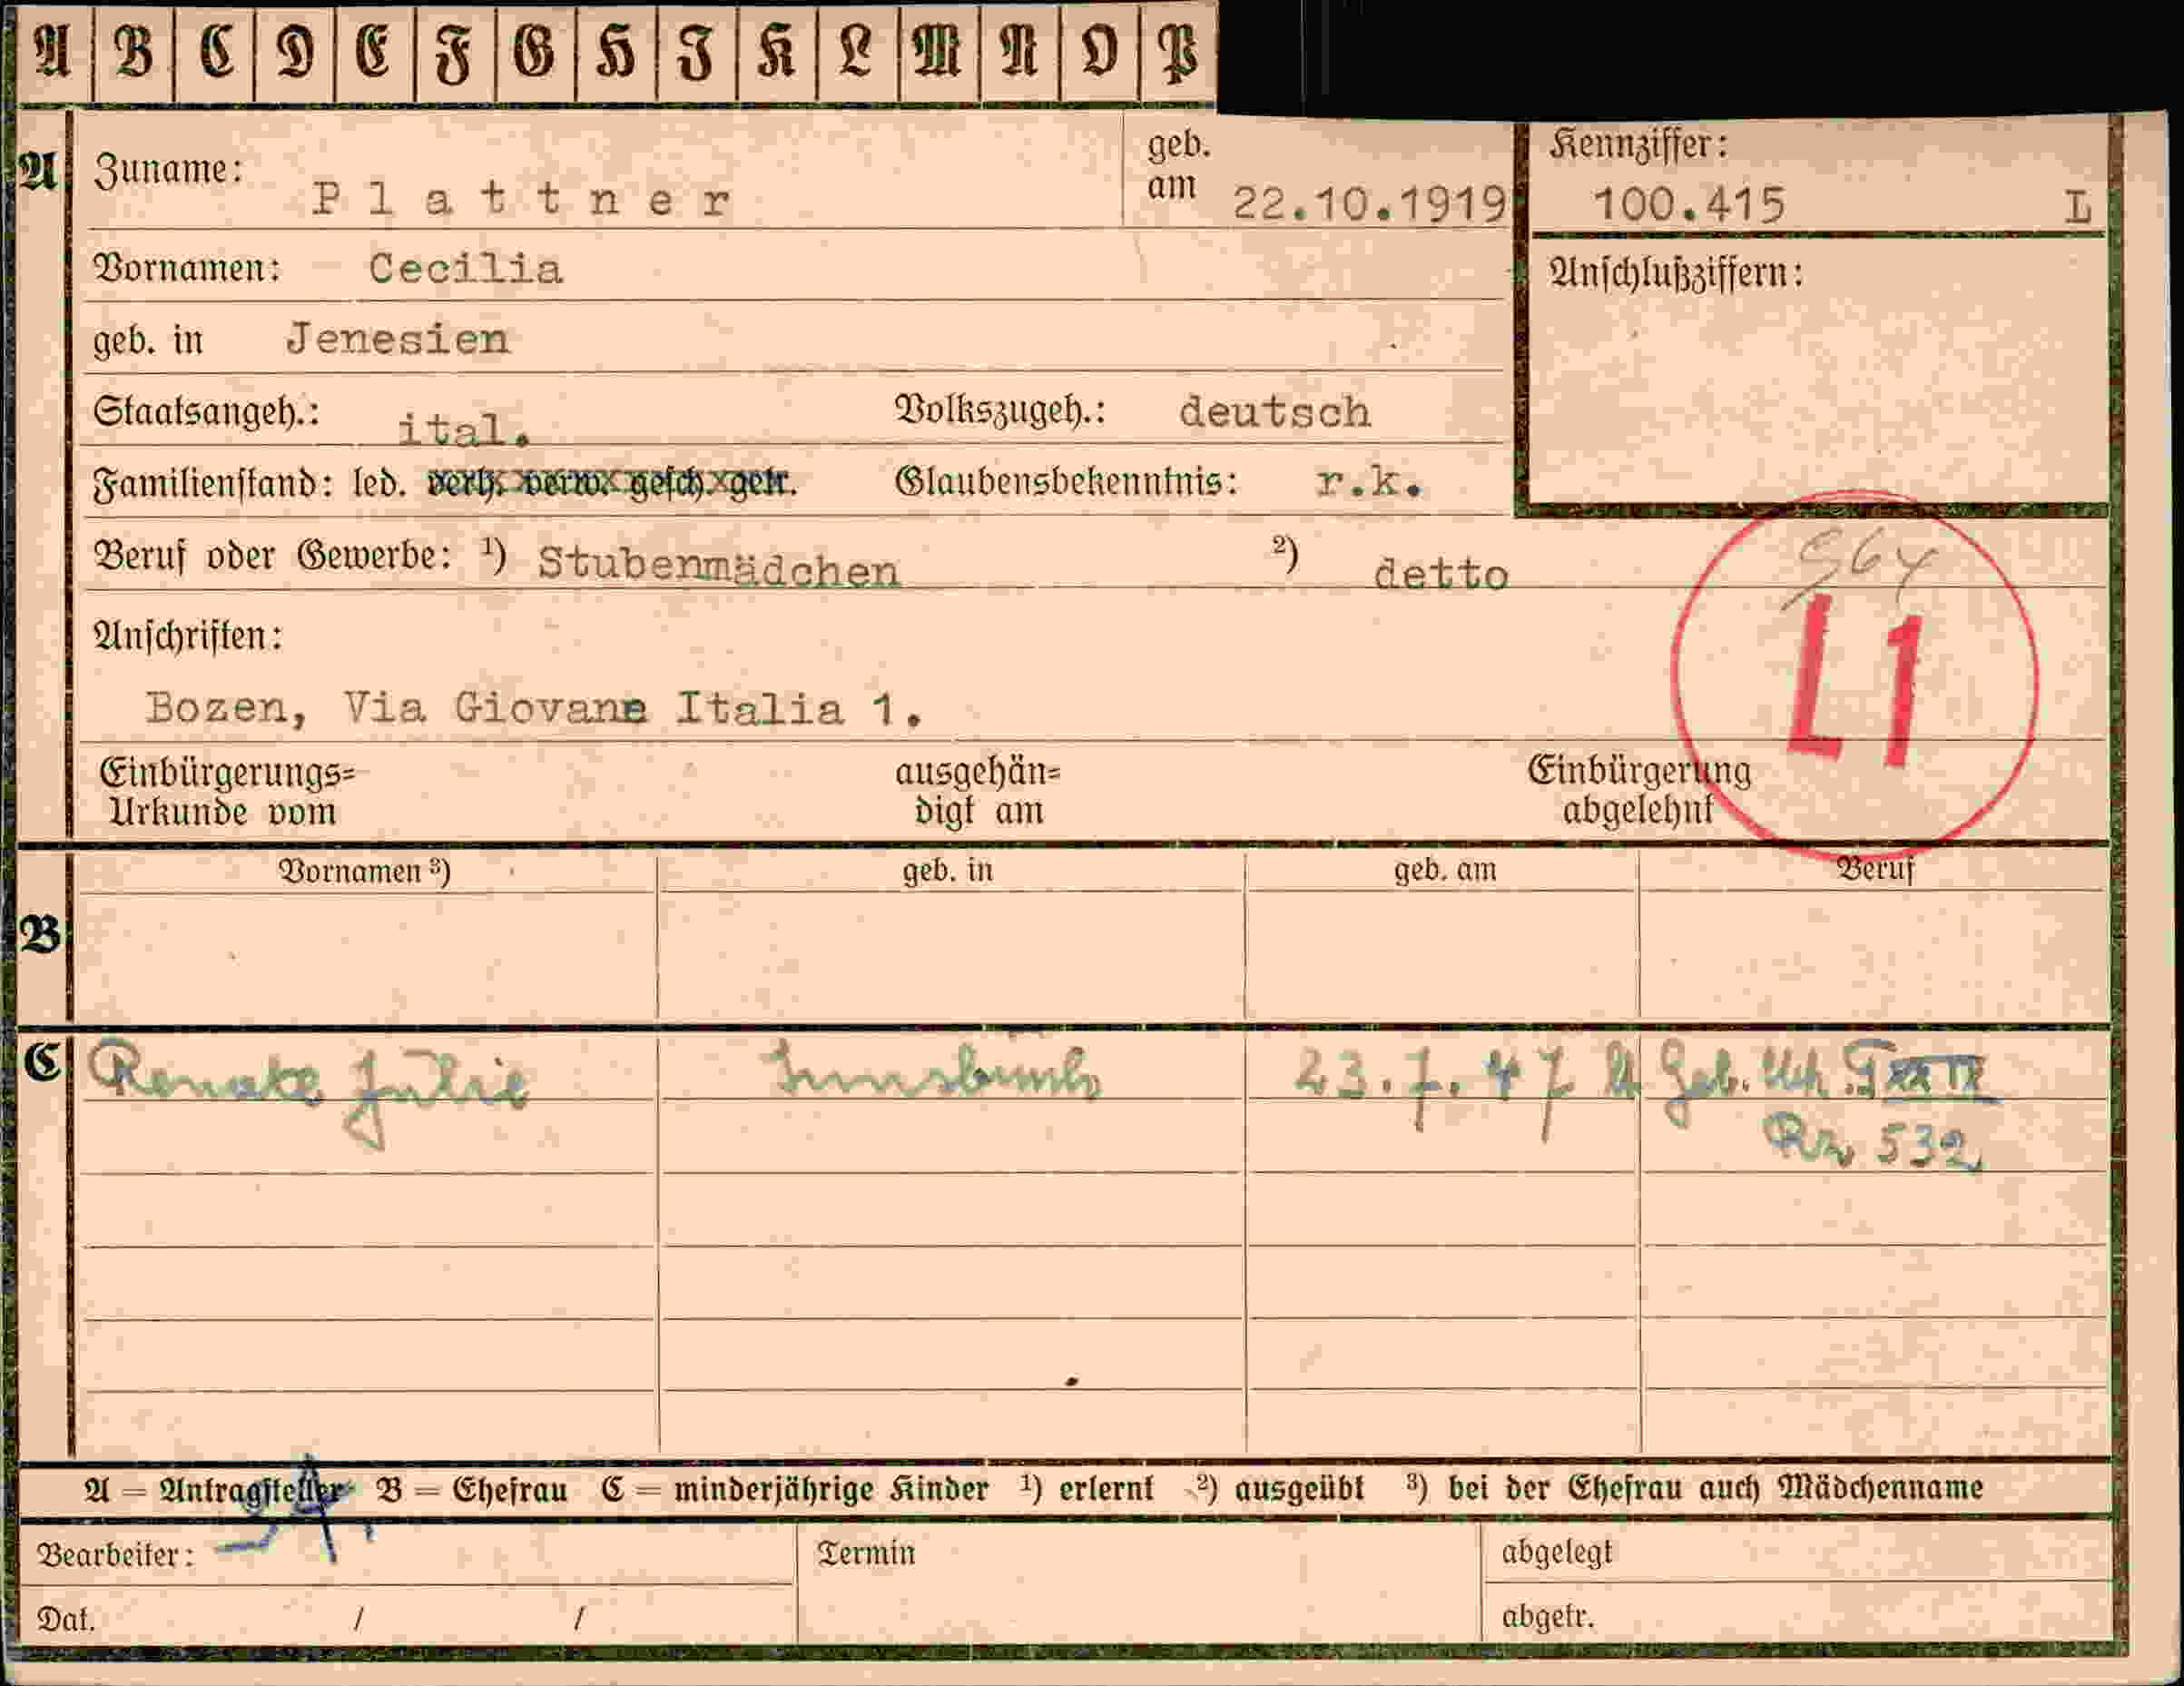 A B C D E F G H J K L M N O P
A Zuname: Plattner geb. am 22.10.1919 Kennziffer: 100.415 L
Vornamen: Cecilia Anschlußziffern:
geb. in Jenesien
Staatsangeh.: ital. Volkszugeh.: deutsch
Familienstand: led. verh. verw. gesch. getr. Glaubensbekenntnis: r.k.
Beruf oder Gewerbe: ¹) Stubenmädchen ²) detto
L1
Anschriften:
Bozen, Via Giovane Italia 1.
Einbürgerungs= ausgehän= Einbürgerung
Urkunde vom digt am abgelehnt
Vornamen ³) geb. in geb. am Beruf
B
C Renate Julie Innsbruck 23.7.47 Geb. Urk.
532
A = Antragsteller B = Ehefrau C = minderjährige Kinder ¹) erlernt ²) ausgeübt ³) bei der Ehefrau auch Mädchenname
Bearbeiter: Termin abgelegt
Dat. / / abgetr.